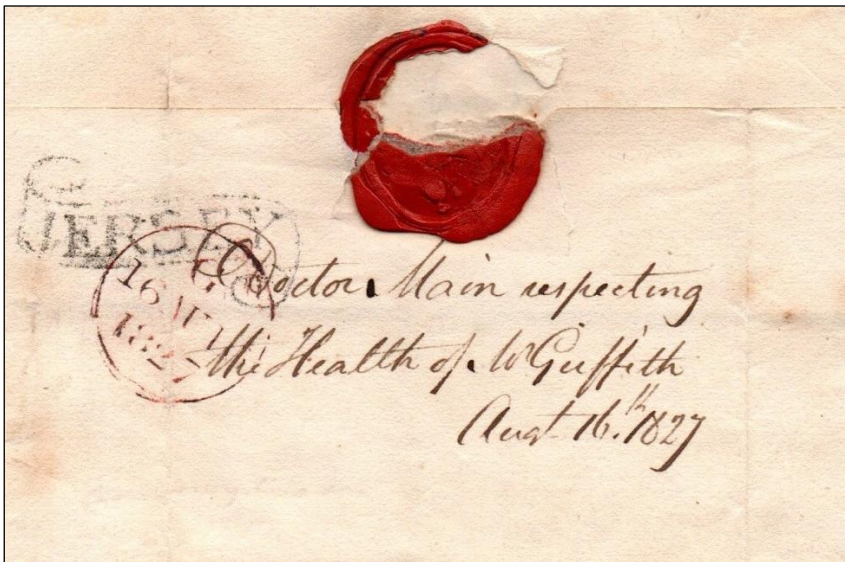 JERSEY
16 AU
1827
Doctor Main respecting
the Health of Mr Griffith
Augt 16.th 1827